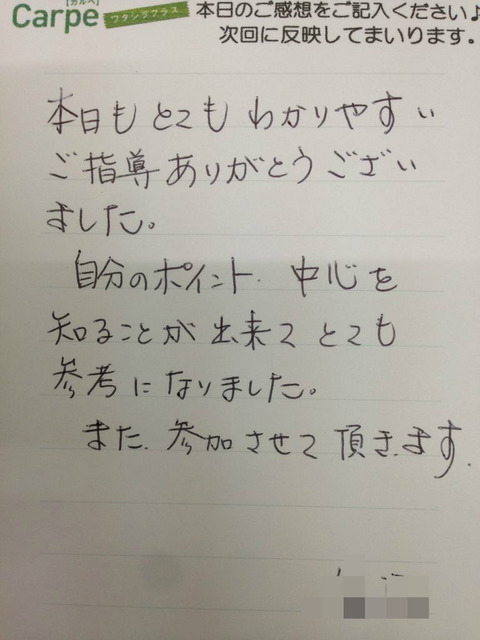 【カルペ】
Carpe ワタシプラス
本日のご感想をご記入ください♪
次回に反映してまいります。
本日もとてもわかりやすい
ご指導ありがとうござい
ました。
自分のポイント、中心を
知ることが出来てとても
参考になりました。
また、参加させて頂きます。